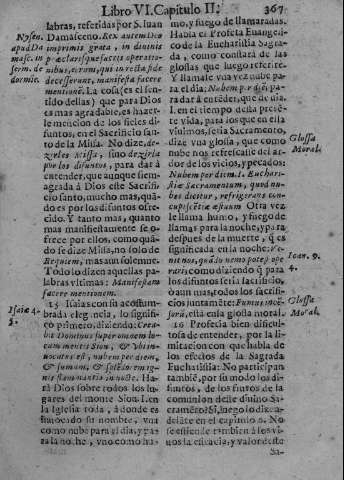 Libro VI. Capitulo II.
367
labras, referidas por S. Iuan
Damasceno. Rex autem Deo
imprimis grata, in divinis
præclarisque factis operatio-
nibus, et rom, qui in recta fide
decesserant, manifesta facere
mentionē. La cosa (es el sen-
tido dellas) que para Dios
es mas agradable, es hazer
mencion de los fieles di-
funtos, en el Sacrificio san-
to de la Missa. No dize, de-
zirles Missa, sino dezirla
por los difuntos, para dár á
entender, que aunque siem-
agrada á Dios este Sacrifi-
cio santo, mucho mas, quā-
do es por los difuntos ofre-
cido. Y tanto mas, quanto
mas manifiestamente se o-
frece por ellos, como quā-
do se dize Missa, no solo de
Requiem, mas aun solemne.
Todo lo dizen aquellas pa-
labras vltimas: Manifestam
facere mentionem.
15 Isaias con su acostum-
brada elegancia, lo signifi-
có primero, diziendo: Crea-
bit Dominus super omnem lo-
cum montis Sion, & vbi in-
vocatus est, nubem per diem,
& fumum, & splendorem ig-
nis flammantis in nocte. Ha-
rá Dios sobre todos los lu-
gares del monte Sion. I. en
la Iglesia toda, á donde es
invocado su nombre, vna
como nube para el dia, y pa-
ra la noche, vno como hu-
Nysen.
apud Da
masc. in
serm. de
dormie.
Isaiæ 4.
5.
mo, y fuego de llamaradas.
Habla el Profeta Euangeli-
co de la Eucharistia Sagra-
da, como constará de las
glossas que luego referire.
Y llamale vna vez nube para
el dia: Nubem per diem pa-
ra dar á entéder, que de dia.
I. en el tiempo desta prese-
te vida, para los que en ella
viuimos, sería Sacramento,
dize vna glossa, que como
nube nos refrescasse del ar-
dor de los vicios, y pecados:
Nubem per diem. I. Euchari-
stiæ Sacramentum, quod nu-
bes dicitur, refrigerans con-
cupiscentiæ æstuum Otra vez
le llama humo, y fuego de
llamas para la noche, y para
despues de la muerte, q̃ es
significada en la noche: Ve-
nit nox, quādo nemo potest ope
rari; como diziendo q̃ para
los difuntos sería sacrificio,
ó aun mas, todos los sacrifi-
cios juntamēte: Fumus incē-
sorū, está cuila glossa moral.
16 Profecía bien dificul-
tosa de entender, por la li-
mitacion con que habla de
los efectos de la Sagrada
Eucharistia: No participan
también, por su modo los di-
funtos, de los frutos de la
comunion deste divino Sa-
cramēto?
no
se estiende tambien á los vi-
uos la eficacia, y valor deste
Sa-
Glossa
Moral.
Ioan. 9.
4.
Glossa
Moral.